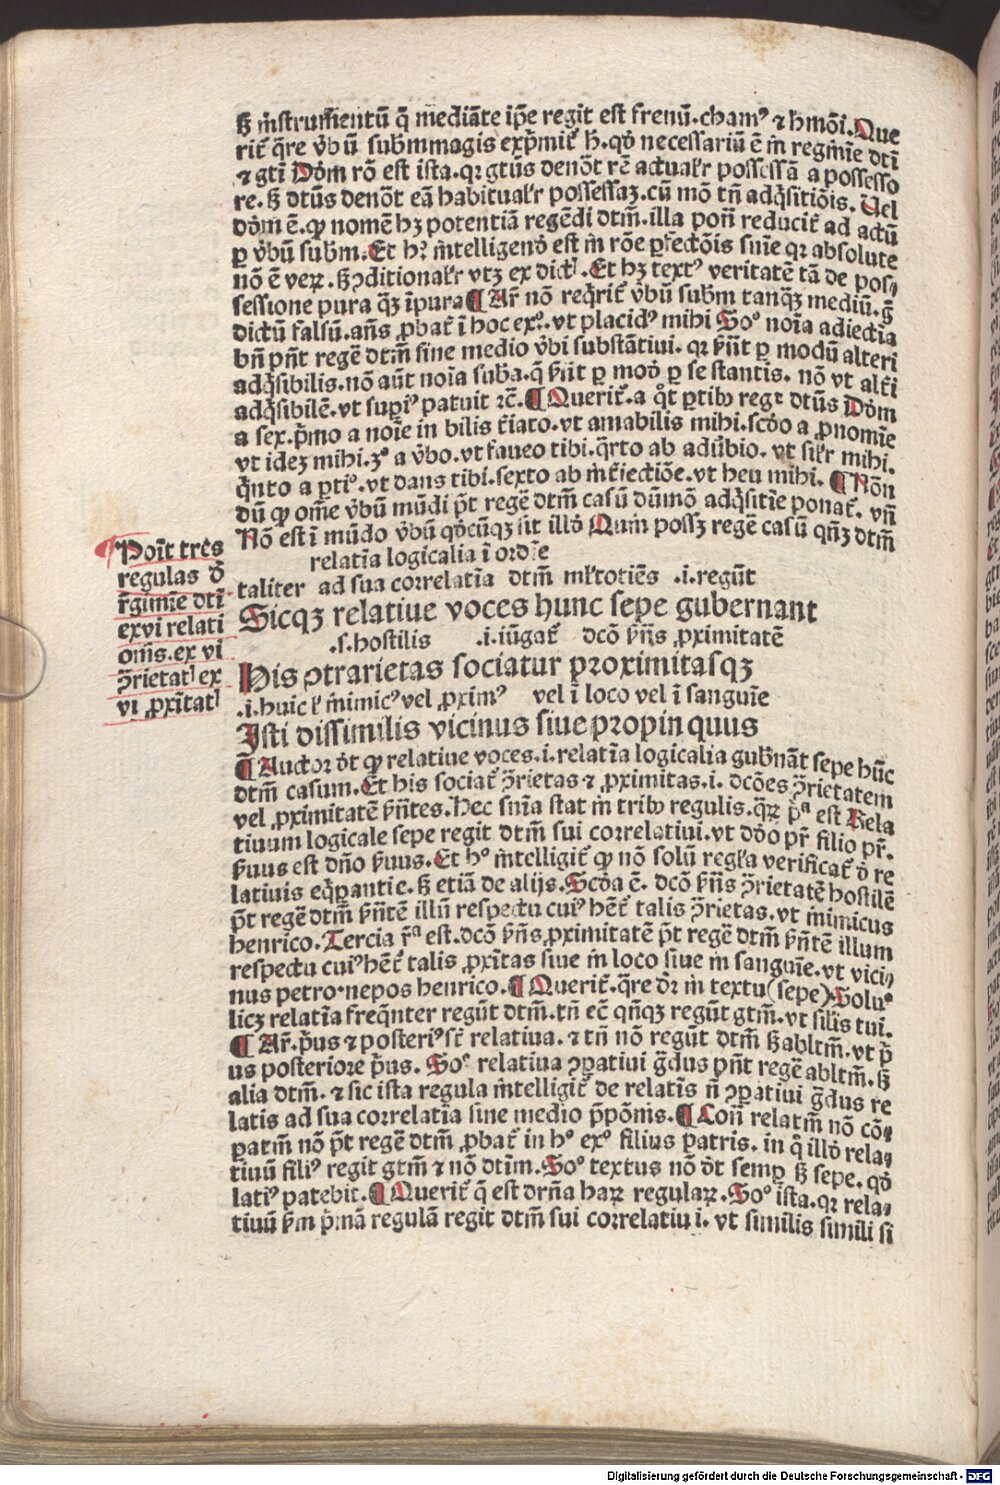 ꝫ instrumentū q̄ mediāte ip̄e regit est frenū.cham⁹ ⁊ hmōi.Que
rit̄ q̄re v̄bū subm magis exp̄mit̄ h̄.qđ necessariū ē in regimīe dti
⁊ gti Dd̄m rō est ista.qꝛ gtūs denōt rē actualr̄ possessā a possesso
re.ꝫ dtūs denōt eā habitualr̄ possessaꝫ.cū mō tn̄ adq̄sitiōis. Uel
dd̄m ē.ꝙ nomē hꝫ potentiā regēdi dtm̄.illa poñ reducit̄ ad actū
ꝑ v̄bū subm.Et h⁹ intelligendō est in rōe ꝑfectōis snīe qꝛ absolute
nō ē veꝝ.ꝫ ꝯditionalr̄ vtꝫ ex dict̄.Et hꝫ text⁹ veritatē tā de pos⸗
sessione pura qꝫ īpura ¶ Ar̄ nō req̄rit̄ v̄bū subm tanqꝫ mediū.g̊
dictū falsū.añs ꝓbat̄ ī hoc ex⁰.vt placid⁹ mihi So⁰ noīa adiectīa
bñ pñt regē dtm̄ sine medio v̄bi substātiui.qꝛ sūt ꝑ modū alteri
adq̄sibilis.nō aūt noīa suba.q̄ sūt ꝑ modū ꝑ se stantis. nō vt altī
adq̄sibilē.vt supi⁹ patuit ꝛc̄.¶ Querit̄.a qͦt ꝑtibꝫ regr̄ dtūs Dd̄m
a sex.p̄mo a noīe in bilis t̄iato.vt amabilis mihi.scd̄o a ꝓnomīe
vt ideꝫ mihi.3⁰ a v̄bo.vt faueo tibi.q̄rto ab adūbio. vt silr̄ mihi.
q̄nto a ꝑti⁰.vt dans tibi.sexto ab int̄iectiōe.vt heu mihi. ¶ Nōn
dū ꝙ om̄e v̄bū mūdi p̄t regē dtm̄ casū dūmō adq̄sitīe ponat̄. vñ
Nō est ī mūdo v̄bū qd̄cūqꝫ sit illd̄ Qum possꝫ regē casū qn̄ꝫ dtm̄
relatīa logicalia ī ordīe
taliter ad sua correlatīa dtm̄ ml̄totiēs .i.regūt
Sicqꝫ relatiue voces hunc sepe gubernant
.s.hostilis .i.iūgat̄ dcō sn̄s ꝓximitatē
His ꝯtrarietas sociatur proximitasqꝫ
.i.huic ł inimic⁹ vel ꝓxim⁹ vel ī loco vel ī sanguīe
Isti dissimilis vicinus siue propinquus
¶ Auctor dt̄ ꝙ relatiue voces.i.relatīa logicalia gub̄nāt sepe hūc
dtm̄ casum.Et his sociat̄ ꝯ̄rietas ⁊ ꝓximitas.i. dcōes ꝯ̄rietatem
vel ꝓximitatē sn̄tes.Hec snīa stat in tribꝫ regulis.q̄ꝝ p̄ᵃ est Rela
tiuum logicale sepe regit dtm̄ sui correlatiui.vt dd̄o pr̄ filio pr̄.
ẜuus est dn̄o ẜuus.Et h⁰ intelligit̄ ꝙ nō solū regl̄a verificat̄ d̄ re
latiuis eq̄ꝑantie.ꝫ etiā de alijs.Scd̄a ē. dcō sn̄s ꝯ̄rietatē hostilē
p̄t regē dtm̄ sn̄tē illū respectu cui⁹ hēt̄ talis ꝯ̄rietas.vt inimicus
henrico.Tercia r̄ᵃ est.dcō sn̄s ꝓximitatē p̄t regē dtm̄ sn̄tē illum
respectu cui⁹ hēt̄ talis ꝓxītas siue in loco siue in sanguīe.vt vici⸗
nus petro.nepos henrico.¶ Querit̄.q̄re dr̄ in textu(sepe)Solu⁰
licꝫ relatīa freq̄nter regūt dtm̄.tn̄ ec̄ qn̄qꝫ regūt gtm̄.vt silis tui.
¶ Ar̄.p̄us ⁊ posteri⁹ st̄ relatiua.⁊ tn̄ nō regūt dtm̄ ꝫ abltm̄.vt p̄
us posteriore p̄us. So⁰ relatiua ꝯꝑatiui g̊dus pñt regē abltm̄.ꝫ
alia dtm̄.⁊ sic ista regula intelligit̄ de relatīs n̄ ꝯꝑatiui g̊dus re
latis ad sua correlatīa sine medio p̄pōnis.¶ Coñ relatm̄ nō cō⸗
ꝑatm̄ nō p̄t regē dtm̄ ꝓbat̄ in h⁰ ex⁰ filius patris. in q̊ illd̄ rela⸗
tiuū fili⁹ regit gtm̄ ⁊ nō dtīm.So⁰ textus nō dt̄ semꝑ ꝫ sepe. qd̄
lati⁹ patebit.¶ Querit̄ q̄ est drn̄a haꝝ regulaꝝ.So⁰ ista.qꝛ rela⸗
tiuū ẜm p̄mā regulā regit dtm̄ sui correlatiui. vt similis simili si
Poīt tres
regulas d̄
r̄gimīe dtī
ex vi relati
oīs.ex vi
ꝯ̄rietatꝭ ex
vi ꝓxītatꝭ
Digitalisierung gefördert durch die Deutsche Forschungsgemeinschaft - DFG